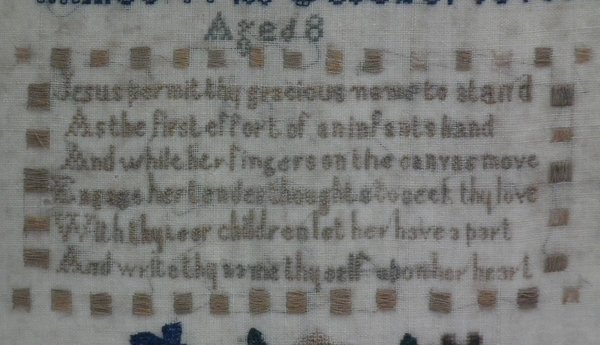 Aged 8
Jesus permit thy gracious name to stand
As the first effort of an infants hand
And while her fingers on the canvas move
Engage her tender thoughts to seek thy love
With thy dear children let her have a part
And write thy name thyself upon her heart